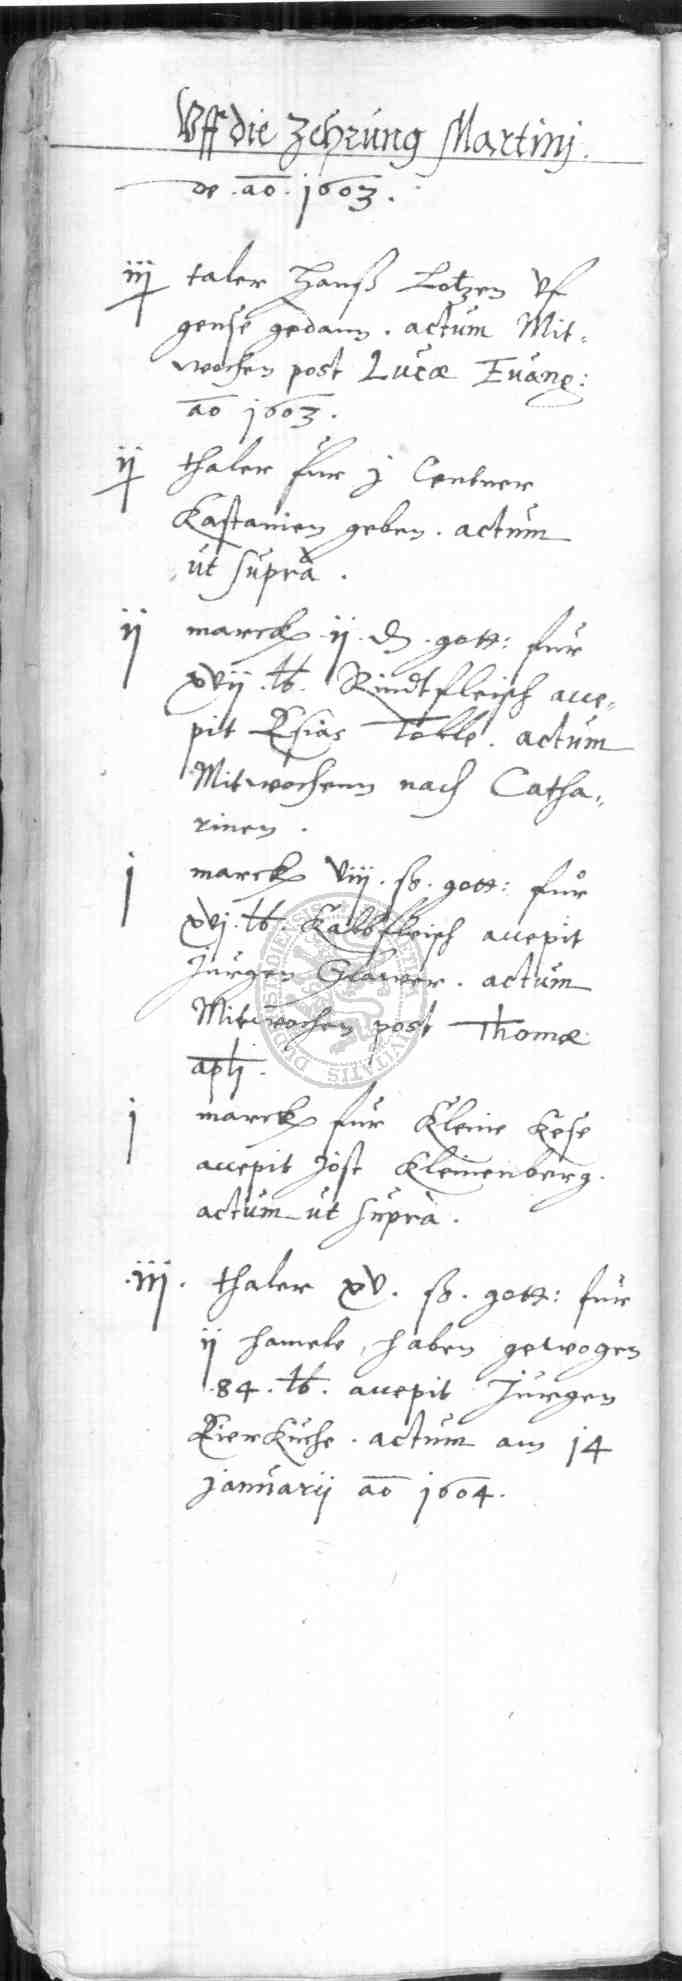 Vff die Zehrung Martinj.
de . ao . 1603 .
iij taler Hanß Lotzen vf
gense gedann . actum Mit-
wochen post Lucae Euang:
ao 1603 .
ij thaler fur j Centner
Kastanien geben . actum
ut supra .
ij marck . ij . d . gott: fur
xvij . lb . Rindtfleisch acce-
pit Esias Tolle . actum
Mitwochenn nach Catha-
rinen .
j marck viij . ß . gott: fur
xvj . lb . Kalbfleisch accepit
Jurgen . actum
Mitwochen post Thomae
apli .
j marck fur Kleine Kese
accepit Jost Kleinenberg .
actum ut supra .
.iij. thaler xv . ß . gott: fur
ij hamele, haben gewogen
.84 . lb . accepit Jurgen
Eierkuche . actum am 14
januarij ao 1604 .